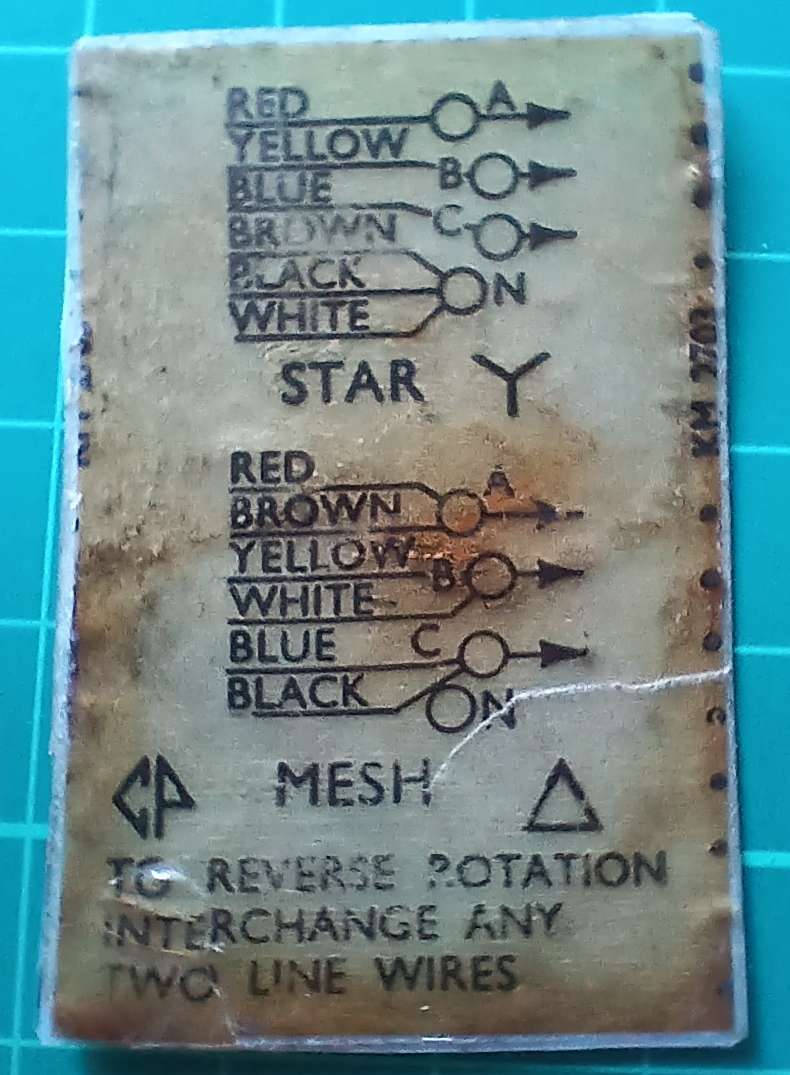 RED
A
YELLOW
B
BLUE
C
BROWN
BLACK
N
WHITE
STAR Y
RED
A
BROWN
YELLOW
B
WHITE
BLUE
C
BLACK
N
CP MESH Δ
TO REVERSE ROTATION
INTERCHANGE ANY
TWO LINE WIRES